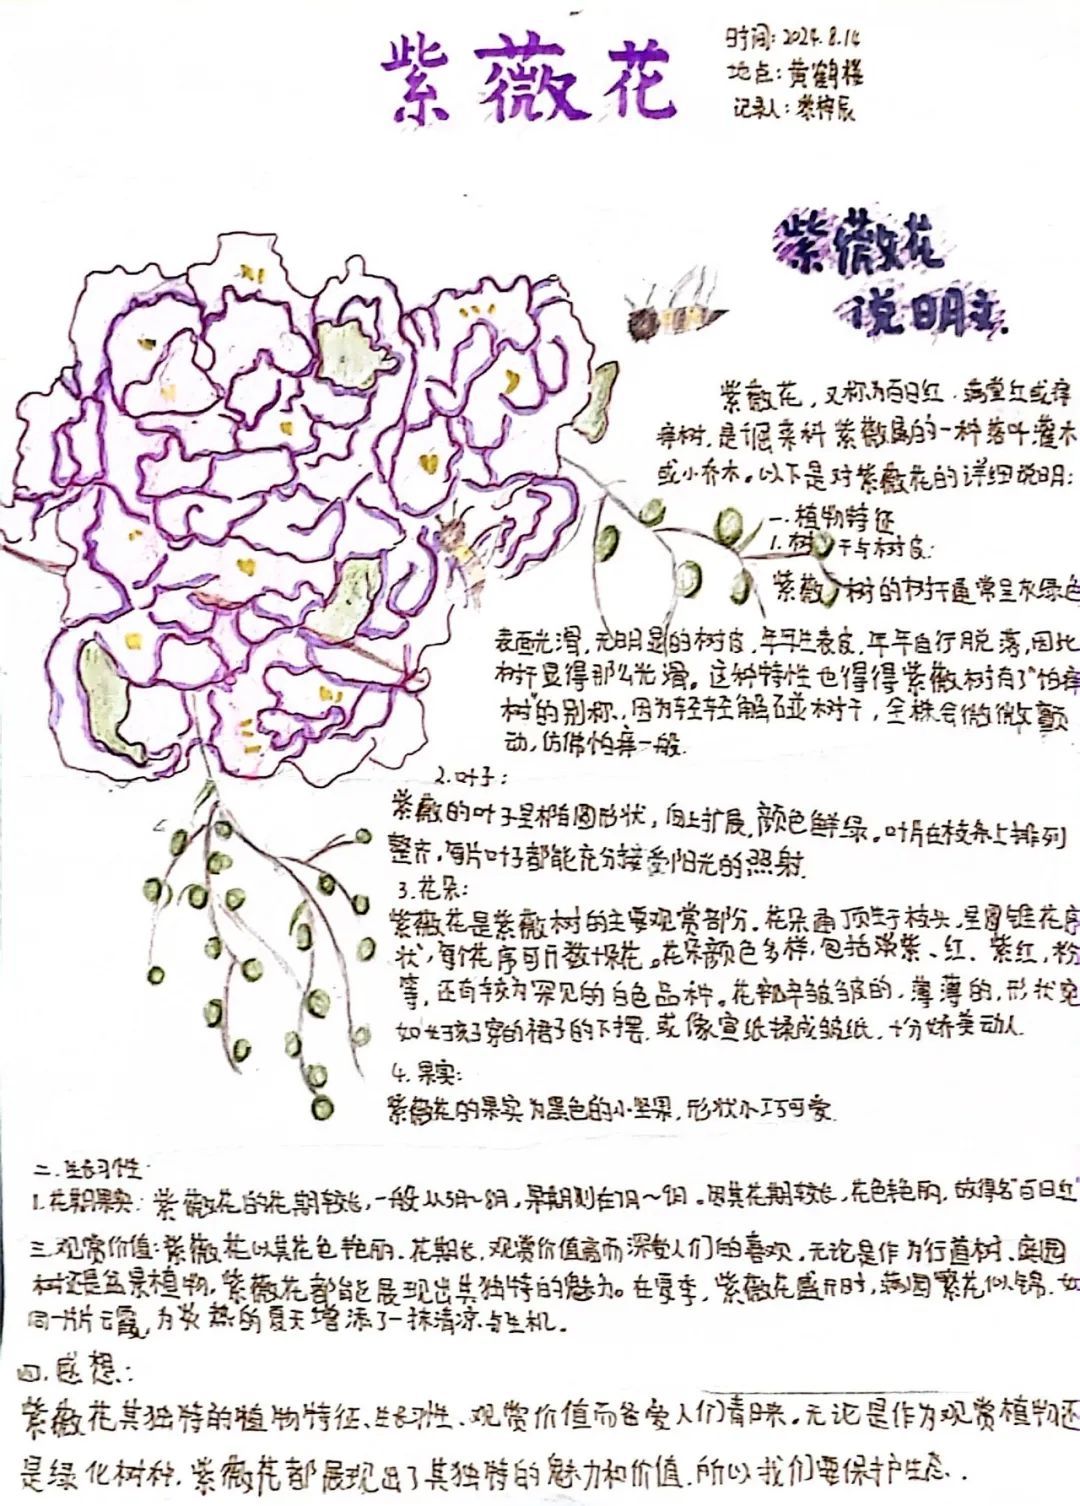 紫薇花
时间：2024.8.14
地点：黄鹤楼
记录人：梓辰
紫薇花
说明文.
紫薇花，又称为百日红.满堂红或痒
痒树.是千屈菜科紫薇属的一种落叶灌木
或小乔木。以下是对紫薇花的详细说明：
一.植物特征
1.树干与树皮：
紫薇树的树干通常呈灰绿色
表面光滑，无明显的树皮，年年生表皮，年年自行脱落，因此
树干显得那么光滑。这种特性也得得紫薇树有了"怕痒
树"的别称.因为轻轻触碰树干，全株会微微颤
动，仿佛怕痒一般.
2.叶子：
紫薇的叶子呈椭圆形状，向上扩展，颜色鲜绿。叶片在枝条上排列
整齐，每片叶子都能充分接受阳光的照射.
3.花朵：
紫薇花是紫薇树的主要观赏部分.花朵通顶生于枝头，呈圆锥花序
状，每个花序可开数十朵花。花朵颜色多样，包括淡紫、红、紫红，粉
等，还有较为罕见的白色品种。花瓣皱皱的，薄薄的，形状宛
如女孩子穿的裙子的下摆.或像宣纸揉成皱纸，十分娇美动人.
4.果实：
紫薇花的果实为黑色的小坚果，形状小巧可爱.
二.生长习性：
1.花期果实：紫薇花的花期较长，一般从5月～8月，果期则在7月～9月。因其花期较长，花色艳丽，故得名"百日红"
三.观赏价值：紫薇花以其花色艳丽.花期长，观赏价值高而深受人们的喜欢.无论是作为行道树.庭园
树还是盆景植物，紫薇花都能展现出其独特的魅力。在夏季，紫薇花盛开时，满园繁花似锦.如
同一片片云霞，为炎热的夏天增添了一抹清凉与生机。
四.感想：
紫薇花其独特的植物特征、生长习性、观赏价值而备受人们青睐。无论是作为观赏植物还
是绿化树种.紫薇花都展现出了其独特的魅力和价值.所以我们要保护生态.